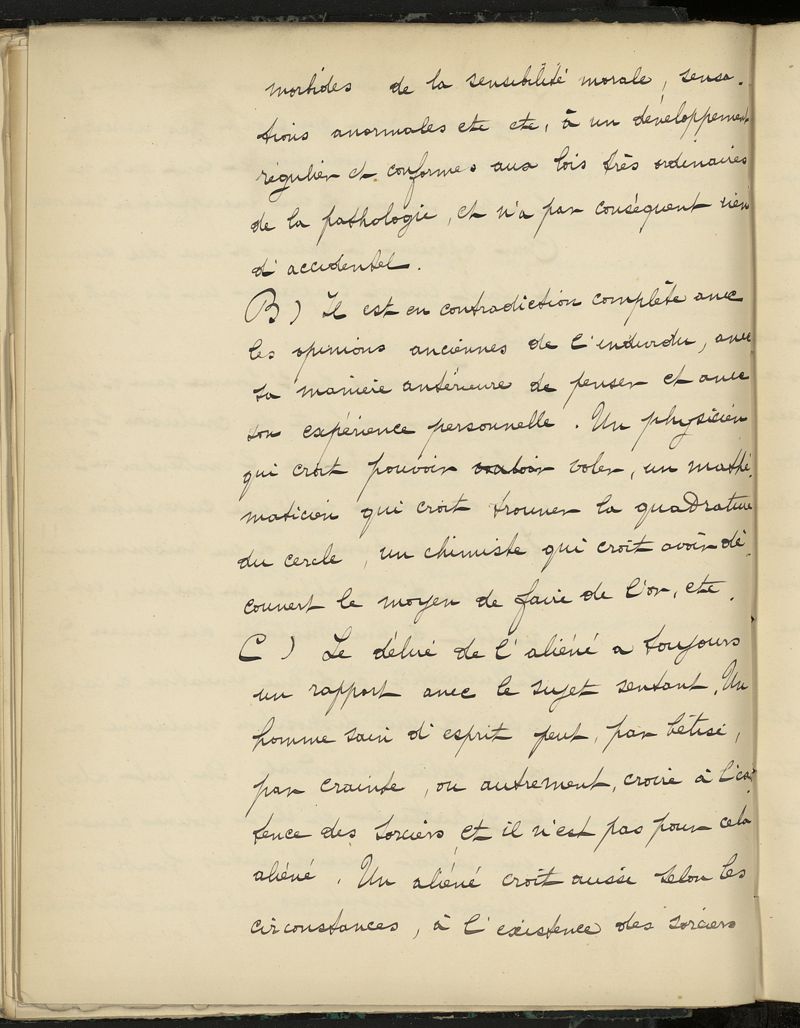 morbides de la sensibilité morale, sensa-
tions anormales etc etc, à un développement
régulier et conforme aux lois très ordinaires
de la pathologie, et n'a par conséquent rien
d'accidentel.
B) Il est en contradiction complète avec
les opinions anciennes de l'individu, avec
sa manière antérieure de penser et avec
son expérience personnelle. Un physicien
qui croit pouvoir voler, un mathé-
maticien qui croit trouver la quadrature
du cercle, un chimiste qui croit avoir dé-
couvert le moyen de faire de l'or, etc.
C) Le délire de l'aliéné a toujours
un rapport avec le sujet sentant. Un
homme sain d'esprit peut, par bétise,
par crainte, ou autrement, croire à l'exis
tence des sorciers et il n'est pas pour cela
aliéné. Un aliéné croit aussi selon les
circonstances, à l'existence des sorciers